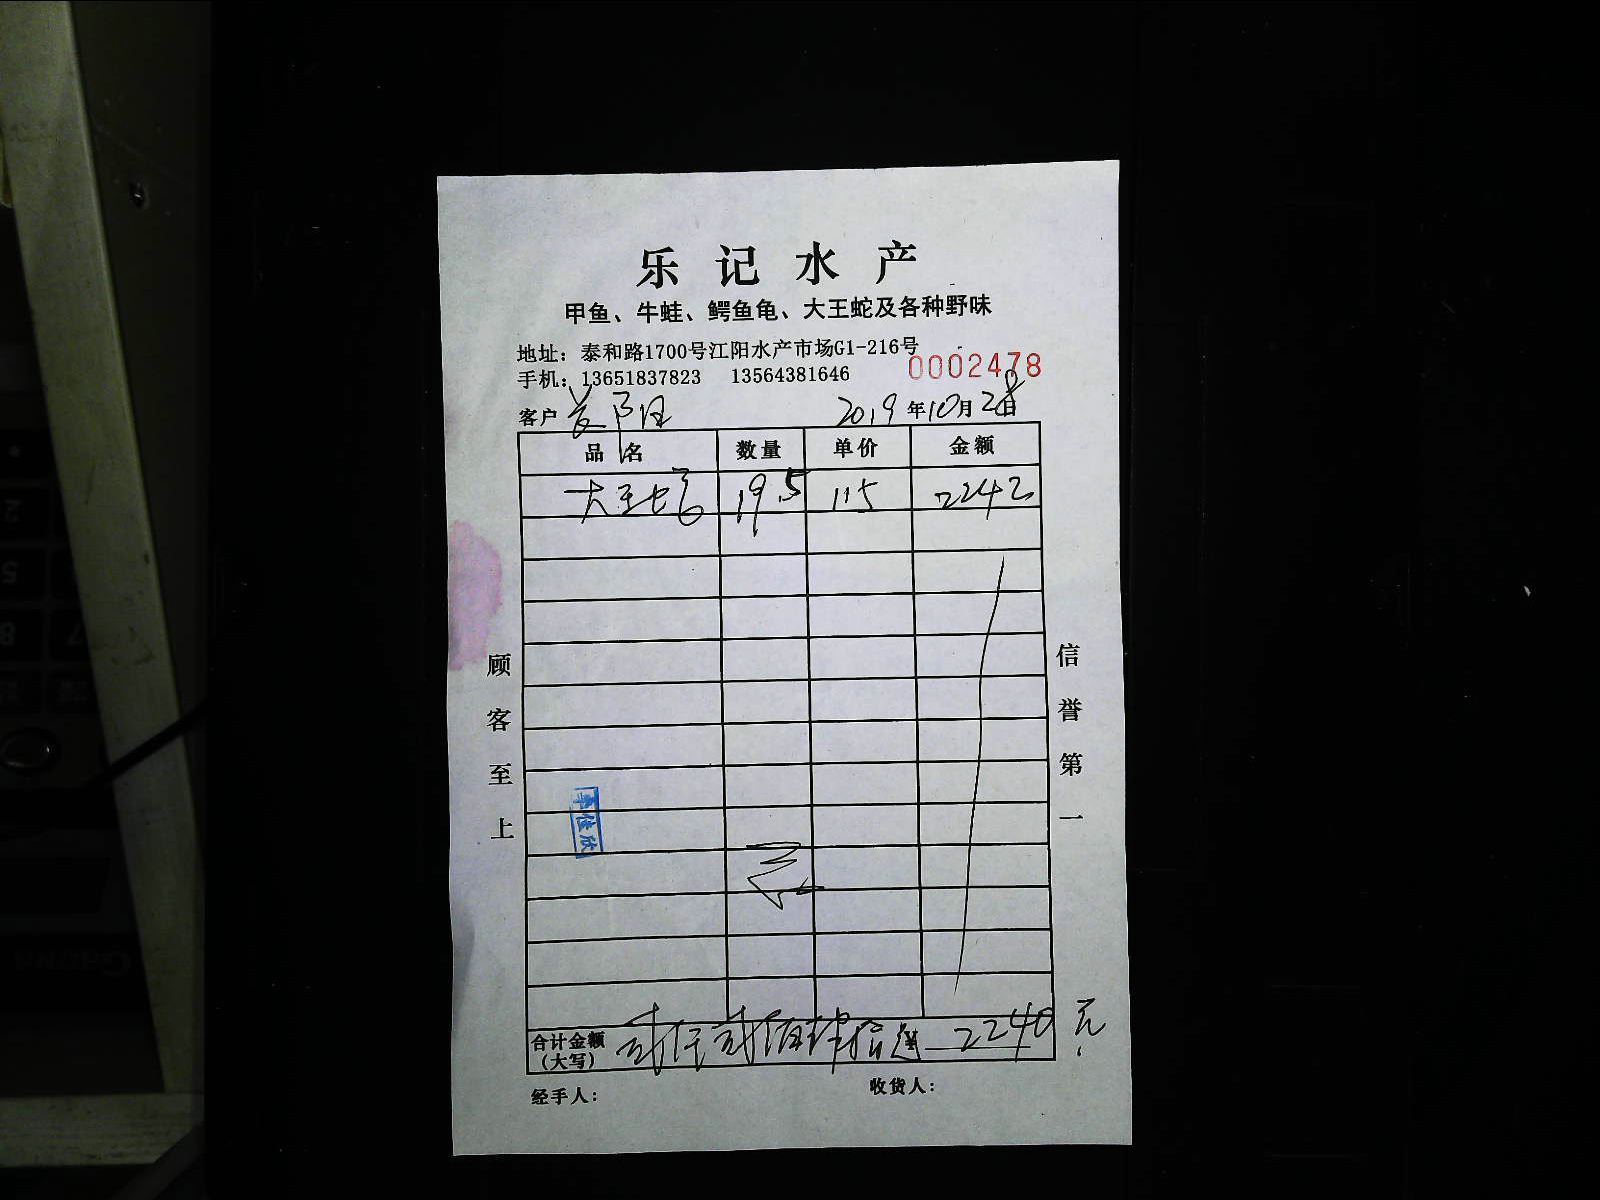 乐记水产
甲鱼、牛蛙、鳄鱼龟、大王蛇及各种野味
地址：泰和路1700号江阳水产市场G1-216号
手机：13651837823 13564381646
0002478
客户 2019年10月28日
品名 数量 单价 金额
大王蛇 19.5 115 2242
顾客至上
信誉第一
佳欣
合计金额 贰仟贰佰肆拾 2240元
（大写）
经手人： 收货人：